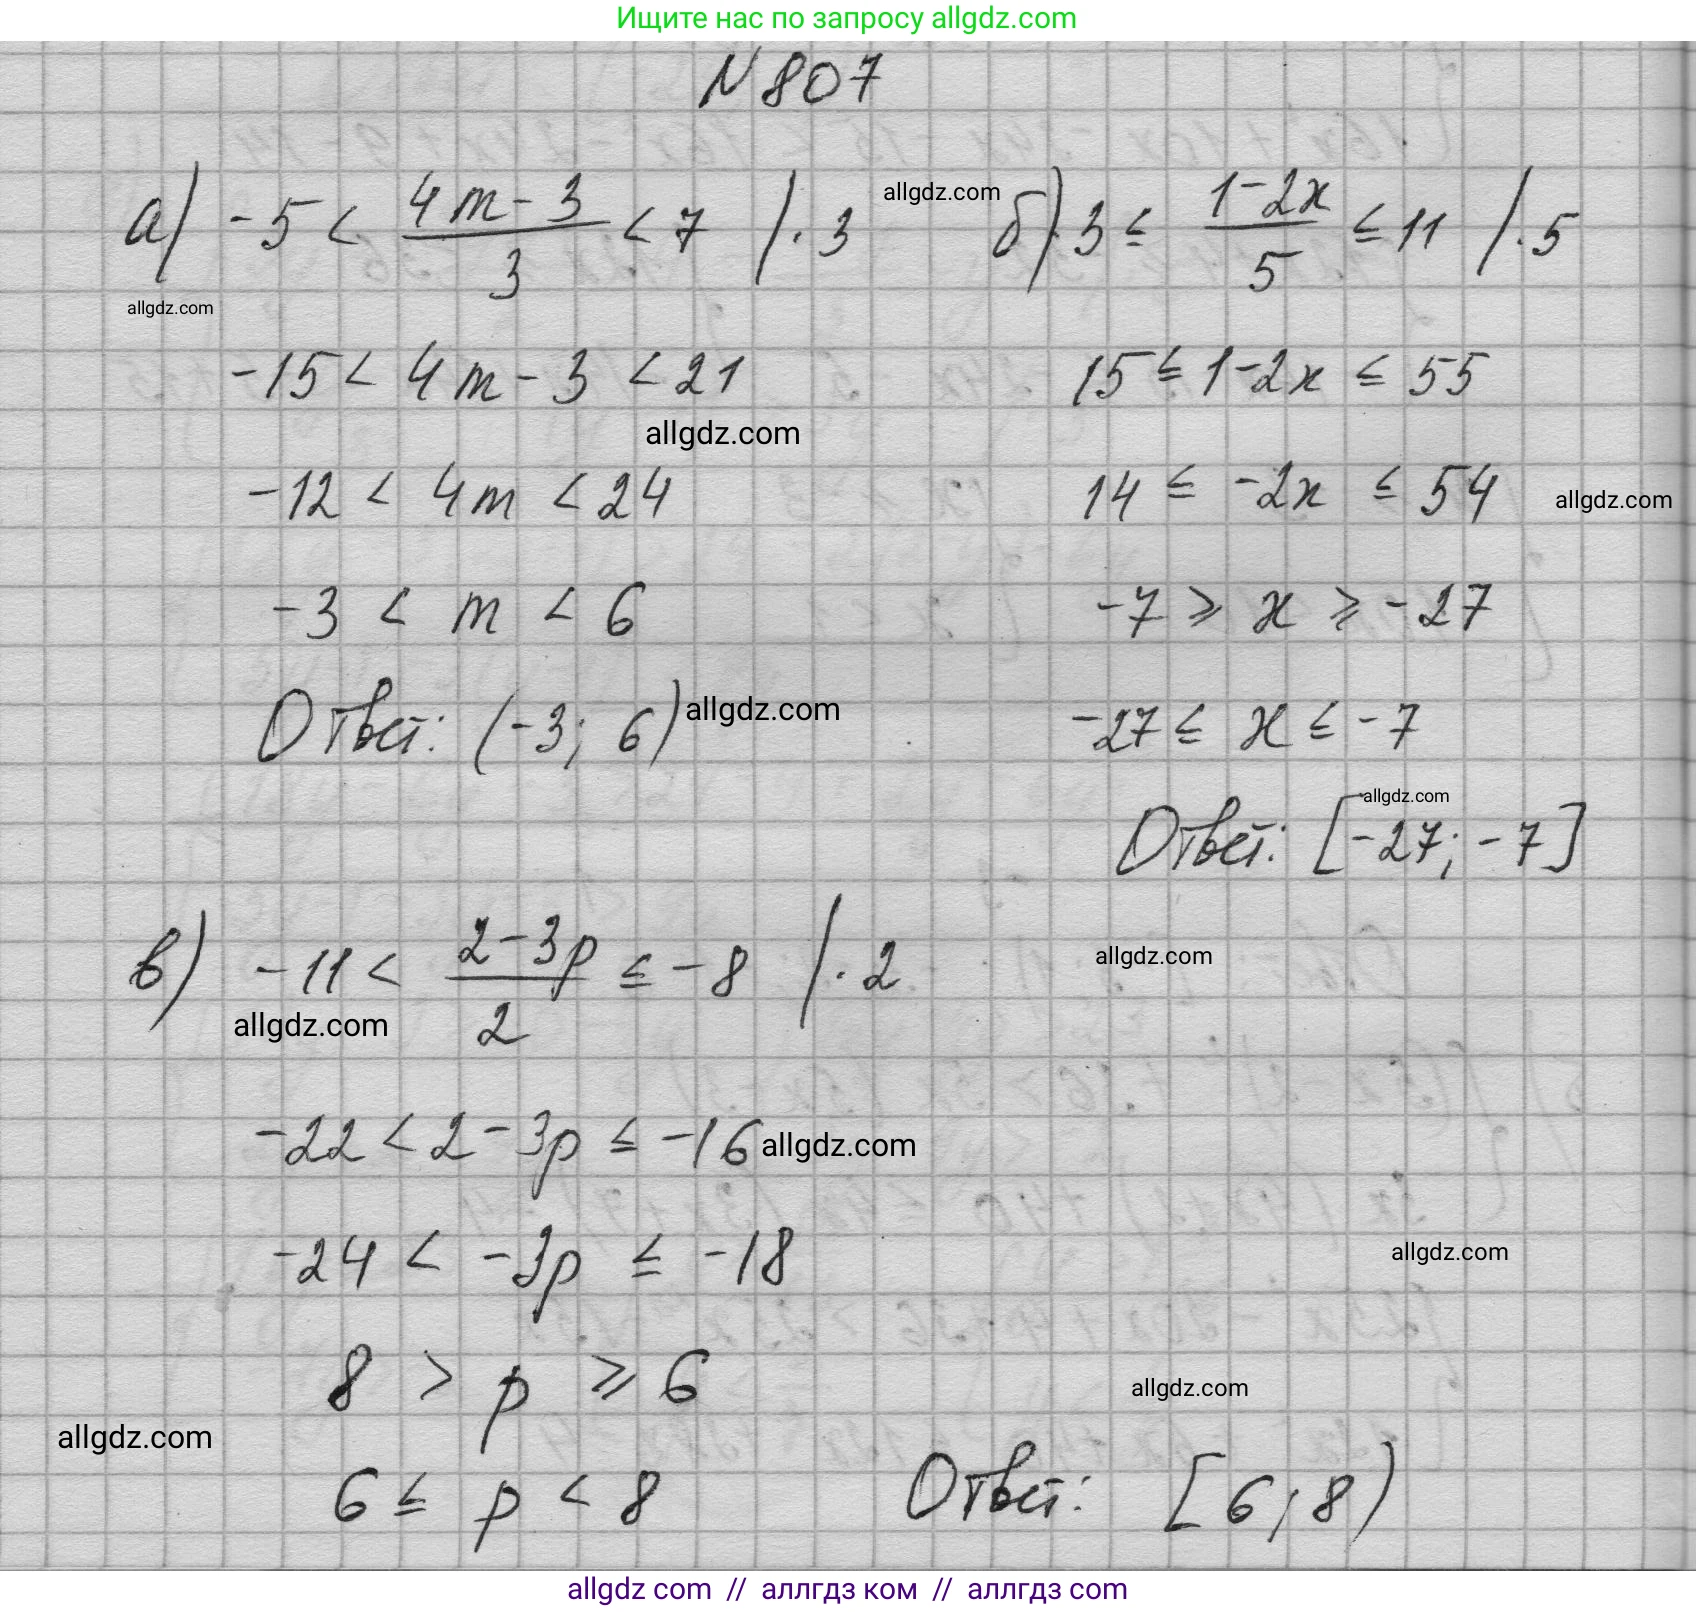 Ищите нас по запросу allgdz.com
N 807
а) -5 < (4m-3)/3 < 7 /·3
allgdz.com
-15 < 4m - 3 < 21
allgdz.com
-12 < 4m < 24
-3 < m < 6
Ответ: (-3; 6)
allgdz.com
allgdz.com
б) 3 ≤ (1-2x)/5 ≤ 11 /·5
15 ≤ 1-2x ≤ 55
14 ≤ -2x ≤ 54
allgdz.com
-7 ⩾ x ⩾ -27
-27 ≤ x ≤ -7
allgdz.com
Ответ: [-27; -7]
в) -11 < (2-3p)/2 ≤ -8 /·2
allgdz.com
allgdz.com
-22 < 2 - 3p ≤ -16
allgdz.com
-24 < -3p ≤ -18
allgdz.com
8 > p ⩾ 6
allgdz.com
allgdz.com
6 ≤ p < 8
Ответ: [6; 8)
allgdz com // аллгдз ком // аллгдз com